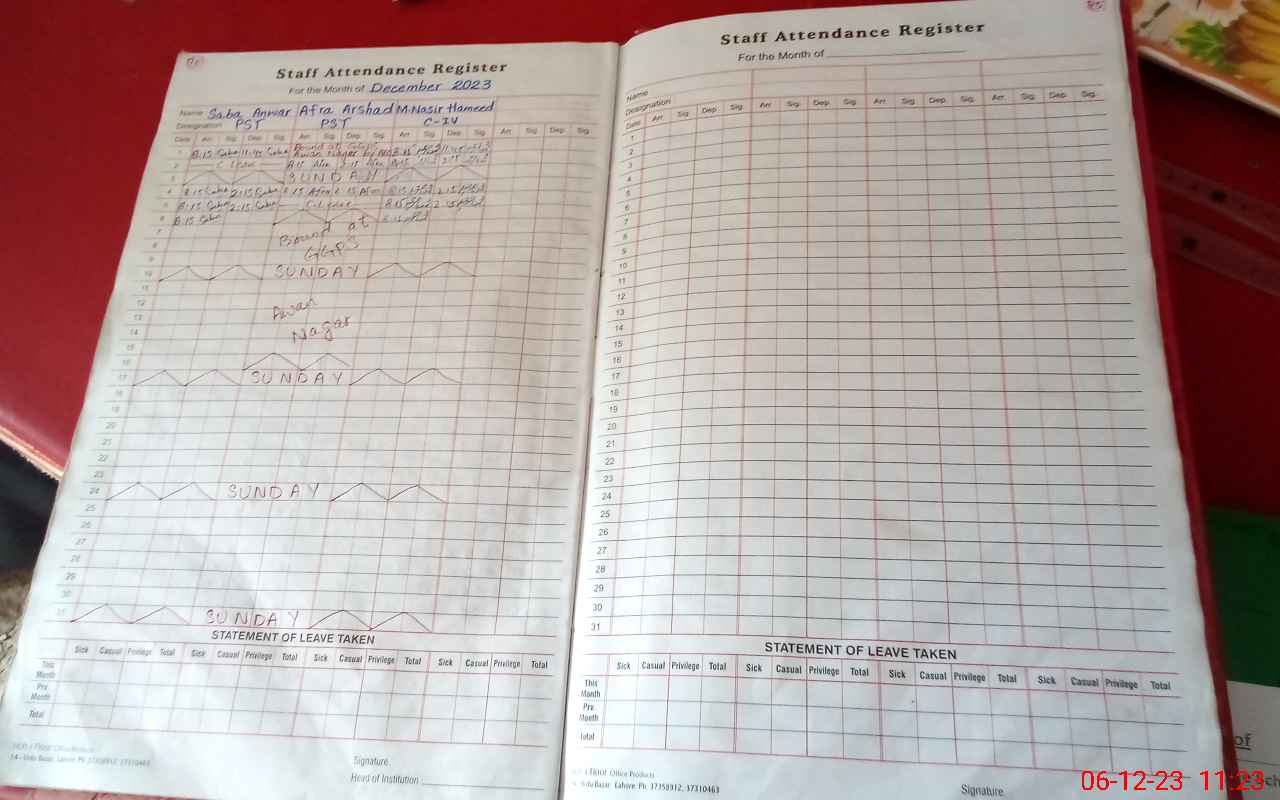 Staff Attendance Register
For the Month of December 2023
Name Saba Anwar Afra Arshad M.Nasir Hameed
Designation PST PST C-IV
Date Arr. Sig. Dep. Sig. Arr. Sig. Dep. Sig. Arr. Sig. Dep. Sig. Arr. Sig. Dep. Sig.
1 8:15 Saba 11:45 Saba Bound at GGPS
Awan Nagar
2 C. Leave 8:15 Afra
3 SUNDAY
4 8:15 Saba 2:15 Saba 8:15 Afra 2:15 Afra 8:15 2:15
5 8:15 Saba 2:15 Saba C.Leave 8:15 2:15
6 8:15 Saba 8:15
7 Bound at
8
9 GGPS
10 SUNDAY
11
12 Awan
13
14 Nagar
15
16
17 SUNDAY
18
19
20
21
22
23
24 SUNDAY
25
26
27
28
29
30
31 SUNDAY
STATEMENT OF LEAVE TAKEN
Sick Casual Privilege Total Sick Casual Privilege Total Sick Casual Privilege Total Sick Casual Privilege Total
This Month
Pre. Month
Total
14 - Urdu Bazar, Lahore. Ph: 37358912, 37310463
Signature.
Head of Institution
Staff Attendance Register
For the Month of
Name
Designation
Date Arr. Sig. Dep. Sig. Arr. Sig. Dep. Sig. Arr. Sig. Dep. Sig. Arr. Sig. Dep. Sig.
1
2
3
4
5
6
7
8
9
10
11
12
13
14
15
16
17
18
19
20
21
22
23
24
25
26
27
28
29
30
31
STATEMENT OF LEAVE TAKEN
Sick Casual Privilege Total Sick Casual Privilege Total Sick Casual Privilege Total Sick Casual Privilege Total
This Month
Pre. Month
Total
Office Products
Urdu Bazar, Lahore. Ph: 37358912, 37310463
Signature.
of
06-12-23 11:23